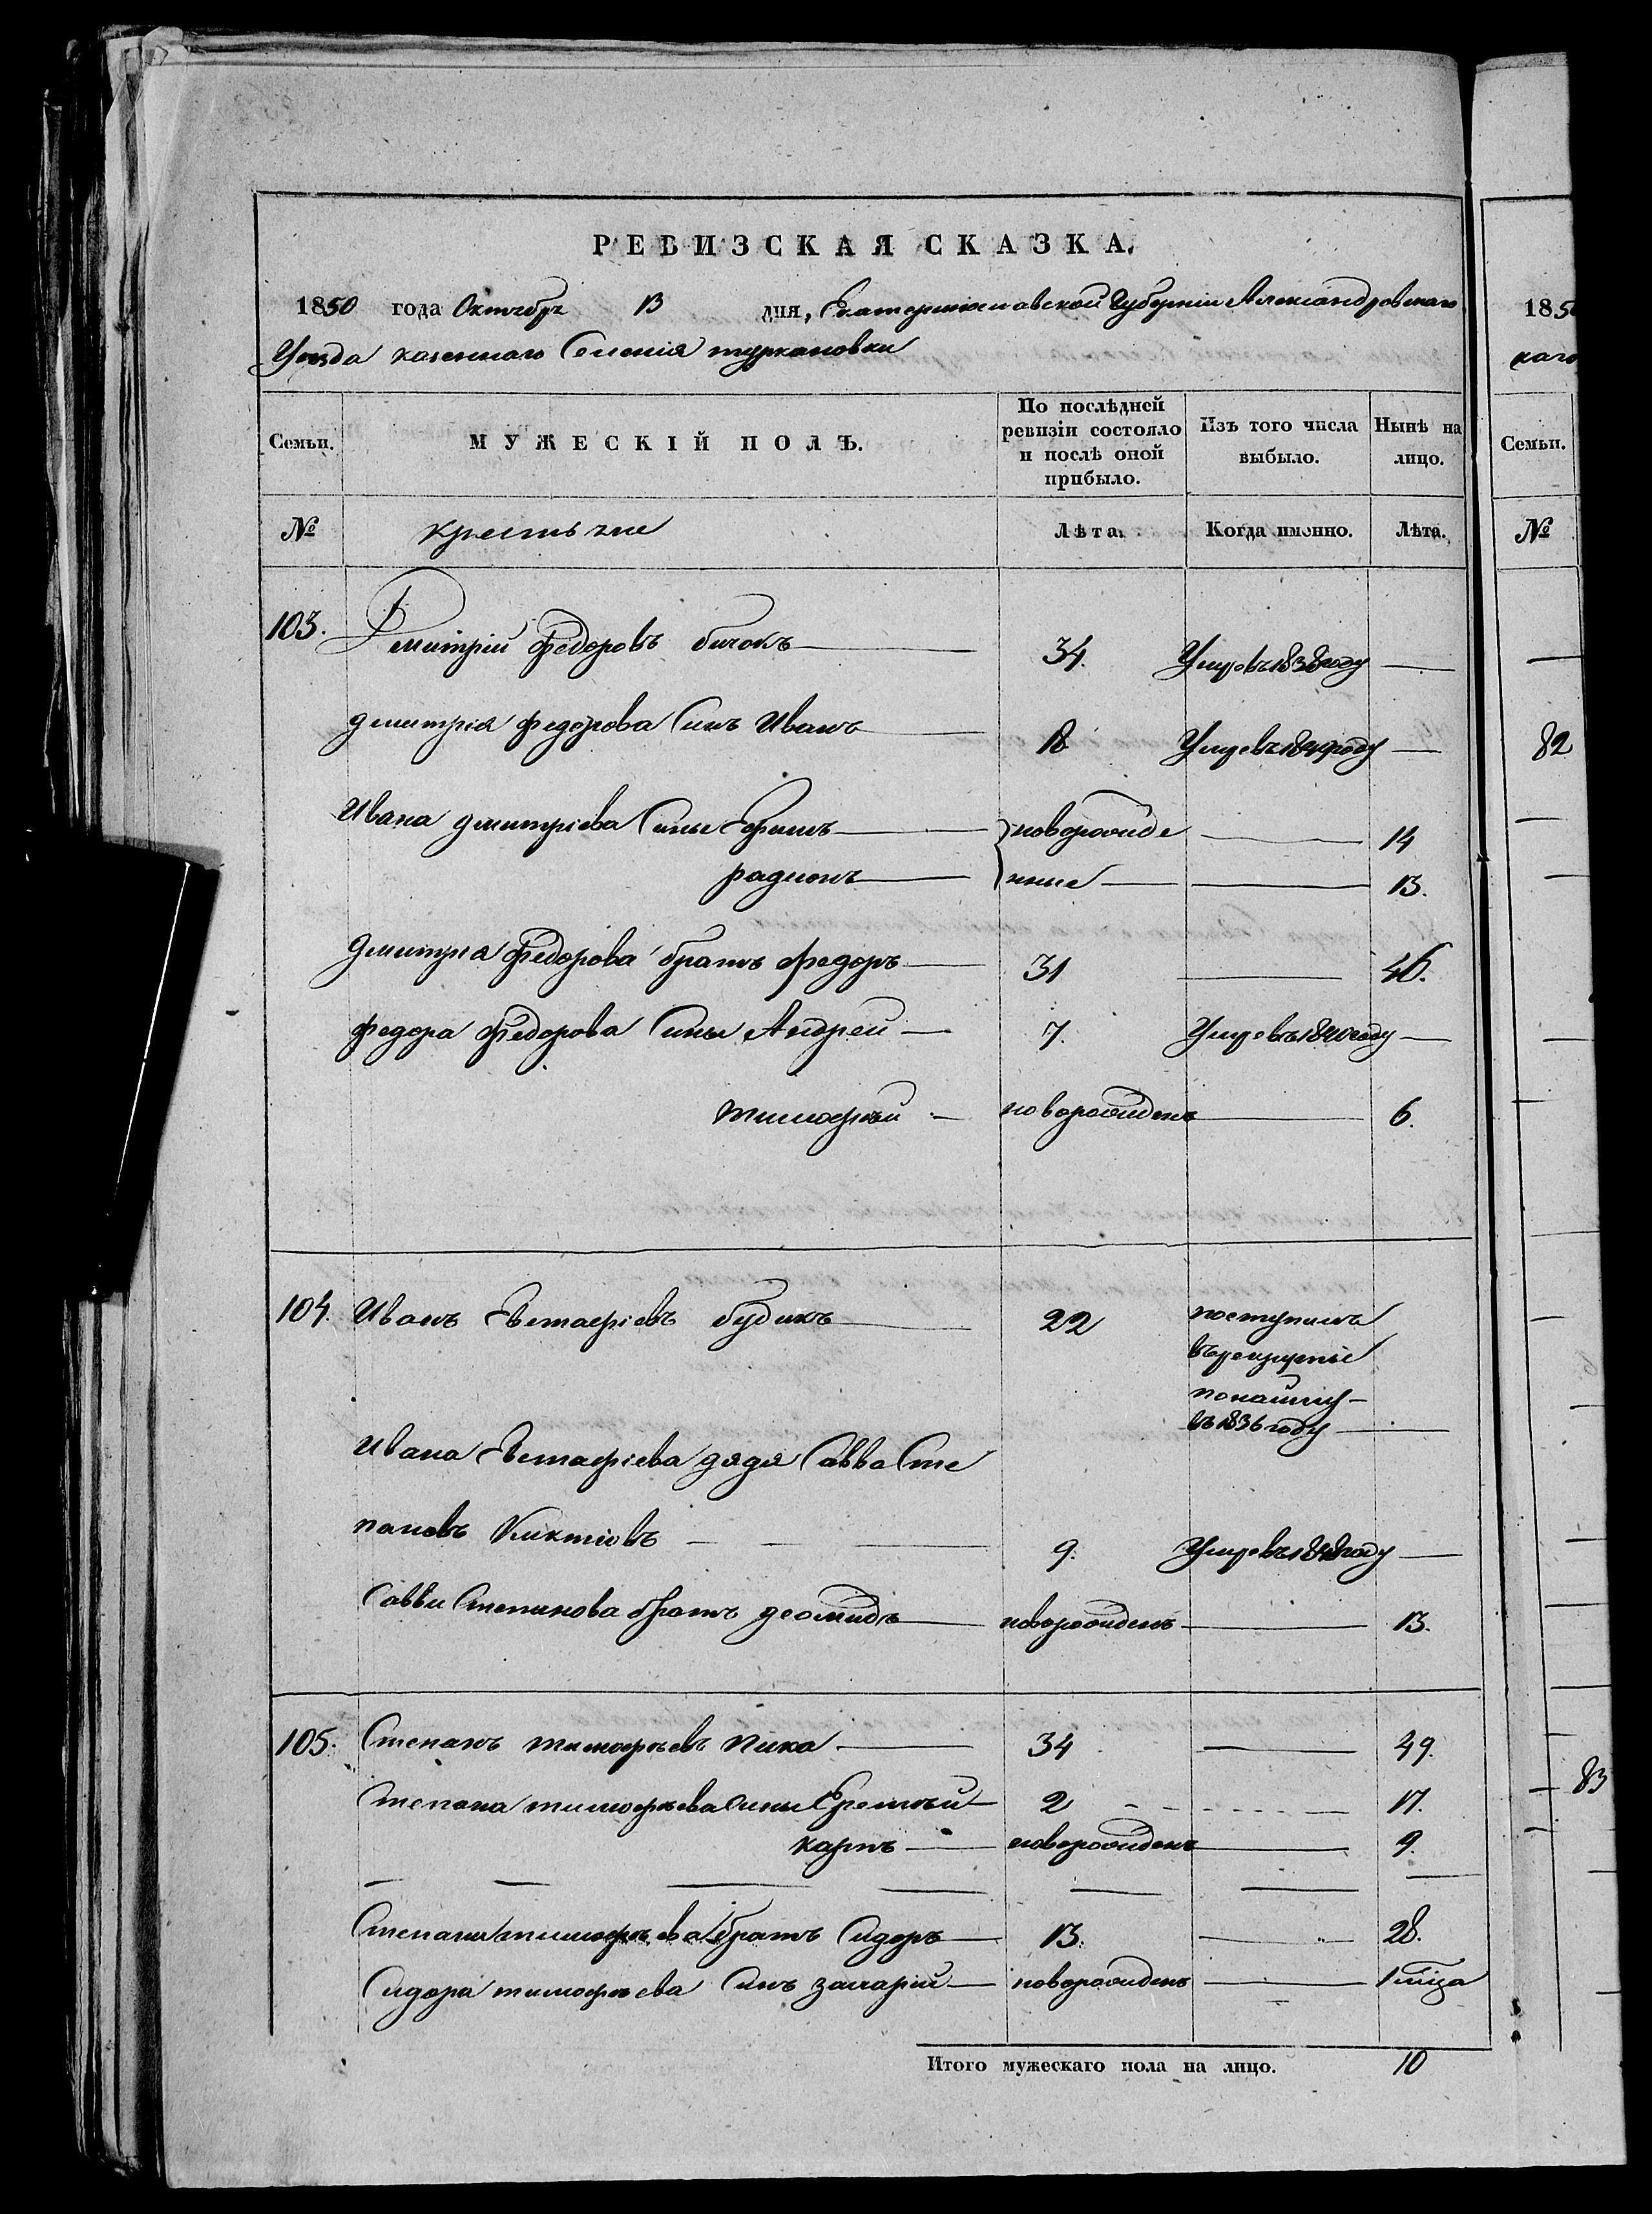 РЕВИЗСКАЯ СКАЗКА.
1850 года Октября 13 дня, Екатеринославской Губерніи Александровскаго
Уезда казеннаго Селенія туркановки
Семьи. МУЖЕСКІЙ ПОЛЪ. По послѣдней ревизіи состояло и послѣ оной прибыло. Изъ того числа выбыло. Нынѣ на лицо.
№ крестьяне Лѣта. Когда именно. Лѣта.
103. Дмитрій Федоровъ бичокъ 34. Умре въ 1838 году
дмитрія федорова Синъ Иванъ 18 Умре въ 1849 году
Ивана дмитріева Сины Ефимъ новорожде 14
радионъ нные 13.
Дмитрія Федорова братъ федоръ 31 46.
федора Федорова Сины Андрей 7. Умре въ 1840 году
тимофей новорожденъ 6.
104. Иванъ Евстафіевъ будикъ 22 поступилъ
въ рекруты
по найму
въ 1836 году
Ивана Евстафіева дядя Савва Сте
пановъ 9. Умре въ 1848 году
Савви Степанова братъ деомидъ новорожденъ 13.
105. Степанъ тимофѣевъ пика 34 49.
Степана тимофѣева Сины Еремѣй 2 17.
карпъ новорожденъ 9.
Степана тимофѣева братъ Сидоръ 13. 28.
Сидора тимофѣева Синъ захарій новорожденъ 1 міца
Итого мужескаго пола на лицо. 10
185
каго
Семьи.
№
82
83